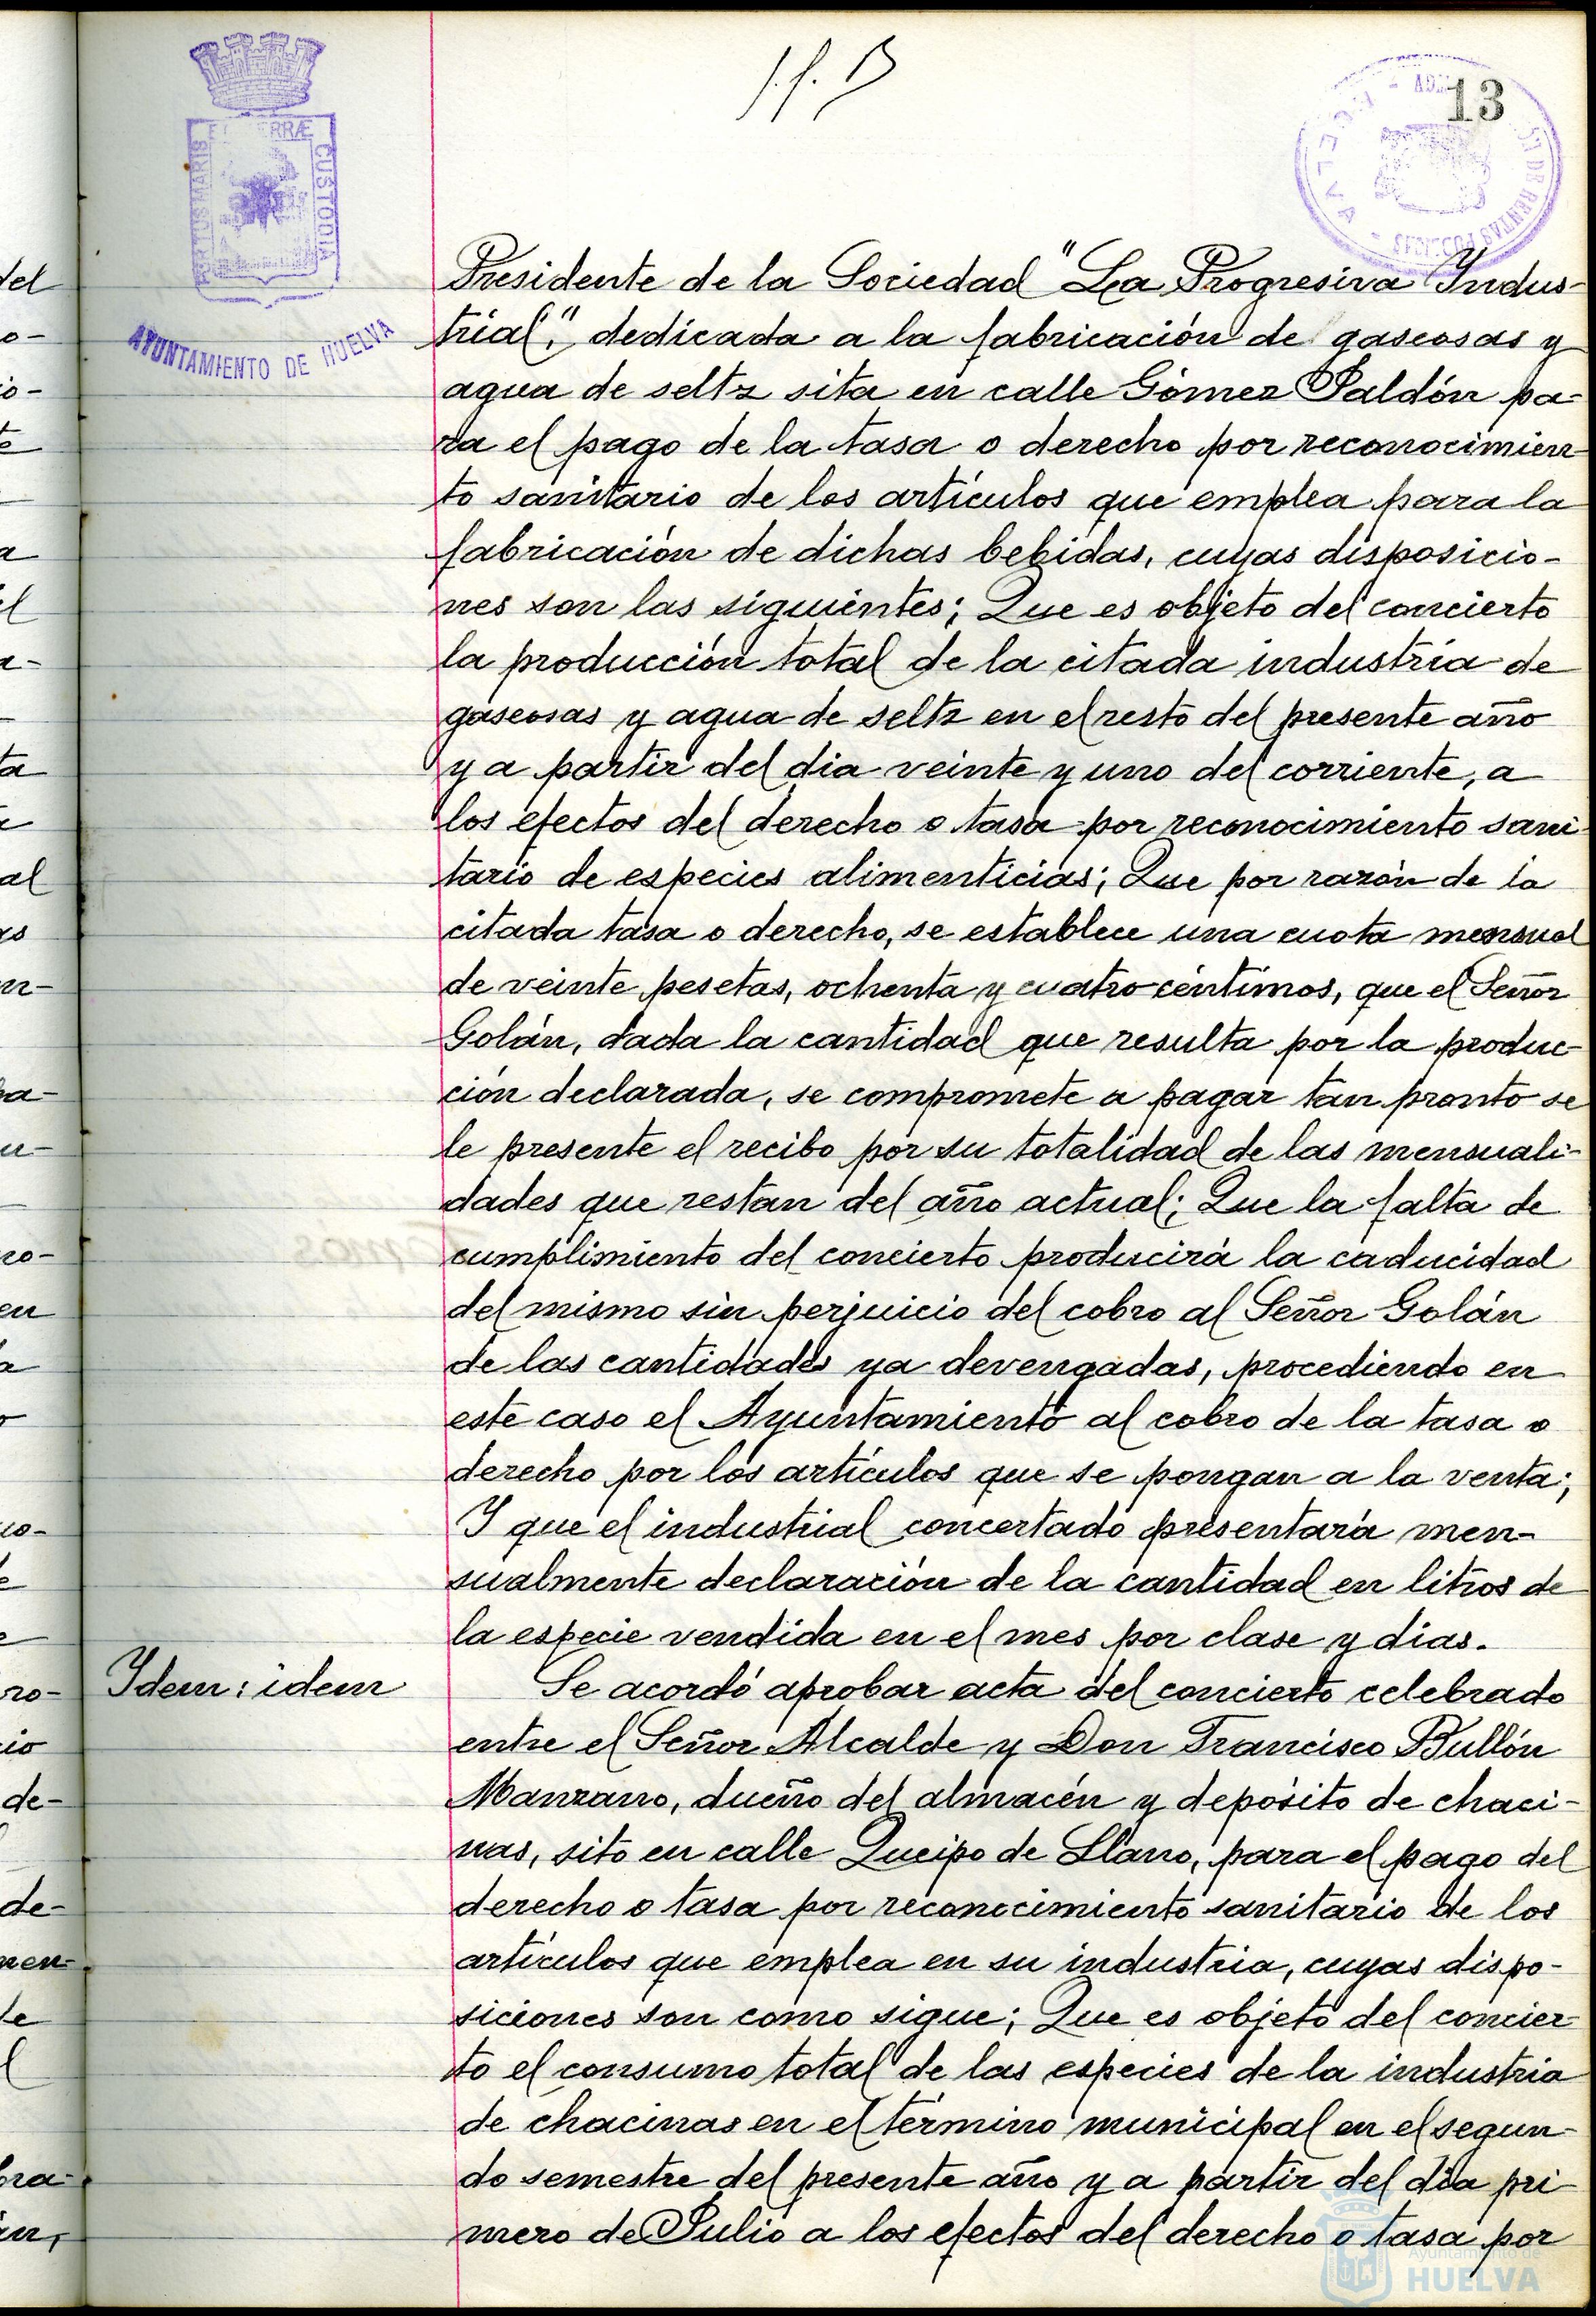 13
PORTUS MARIS
ET TERRÆ
CUSTODIA
AYUNTAMIENTO DE HUELVA
Presidente de la Sociedad "La Progresiva Indus-
trial", dedicada a la fabricación de gaseosas y
agua de seltz sita en calle Gómez Jaldón pa-
ra el pago de la tasa o derecho por reconocimien-
to sanitario de los artículos que emplea para la
fabricación de dichas bebidas, cuyas disposicio-
nes son las siguientes; Que es objeto del concierto
la producción total de la citada industria de
gaseosas y agua de seltz en el resto del presente año
y a partir del dia veinte y uno del corriente, a
los efectos del derecho o tasa por reconocimiento sani-
tario de especies alimenticias; Que por razón de la
citada tasa o derecho, se establece una cuota mensual
de veinte pesetas, ochenta y cuatro céntimos, que el Señor
Golán, dada la cantidad que resulta por la produc-
ción declarada, se compromete a pagar tan pronto se
le presente el recibo por su totalidad de las mensuali-
dades que restan del año actual; Que la falta de
cumplimiento del concierto producirá la caducidad
del mismo sin perjuicio del cobro al Señor Golán
de las cantidades ya devengadas, procediendo en
este caso el Ayuntamiento al cobro de la tasa o
derecho por los artículos que se pongan a la venta;
Y que el industrial concertado presentará men-
sualmente declaración de la cantidad en litros de
la especie vendida en el mes por clase y dias.
Idem: idem
Se acordó aprobar acta del concierto celebrado
entre el Señor Alcalde y Don Francisco Bullón
Manzano, dueño del almacén y depósito de chaci-
nas, sito en calle Queipo de Llano, para el pago del
derecho o tasa por reconocimiento sanitario de los
artículos que emplea en su industria, cuyas dispo-
siciones son como sigue; Que es objeto del concier-
to el consumo total de las especies de la industria
de chacinas en el término municipal en el segun-
do semestre del presente año y a partir del día pri-
mero de Julio a los efectos del derecho o tasa por
Ayuntamiento de
HUELVA